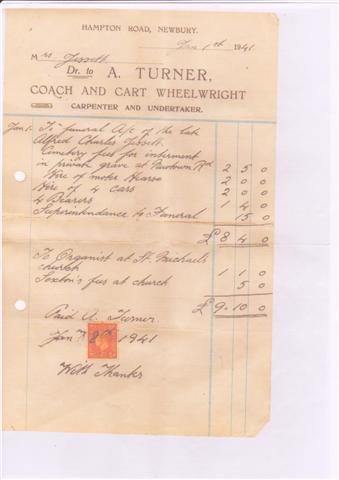 HAMPTON ROAD, NEWBURY.
Jan 1st 1941
Mrs Jessett
Dr. to A. TURNER,
COACH AND CART WHEELWRIGHT
CARPENTER AND UNDERTAKER.
Jan 1. To funeral A/c of the late
Alfred Charles Jessett.
Cemetery fees for interment
in private grave at Newtown Rd 2 5 0
Hire of motor Hearse 2 0 0
Hire of 4 cars 2 0 0
4 Bearers 1 4 0
Superintendance to Funeral 15 0
£ 8 4 0
To Organist at St. Michaels
church 1 1 0
Sexton's fees at church 5 0
£ 9-10 0
Paid A. Turner
Jan 8th 1941
With Thanks